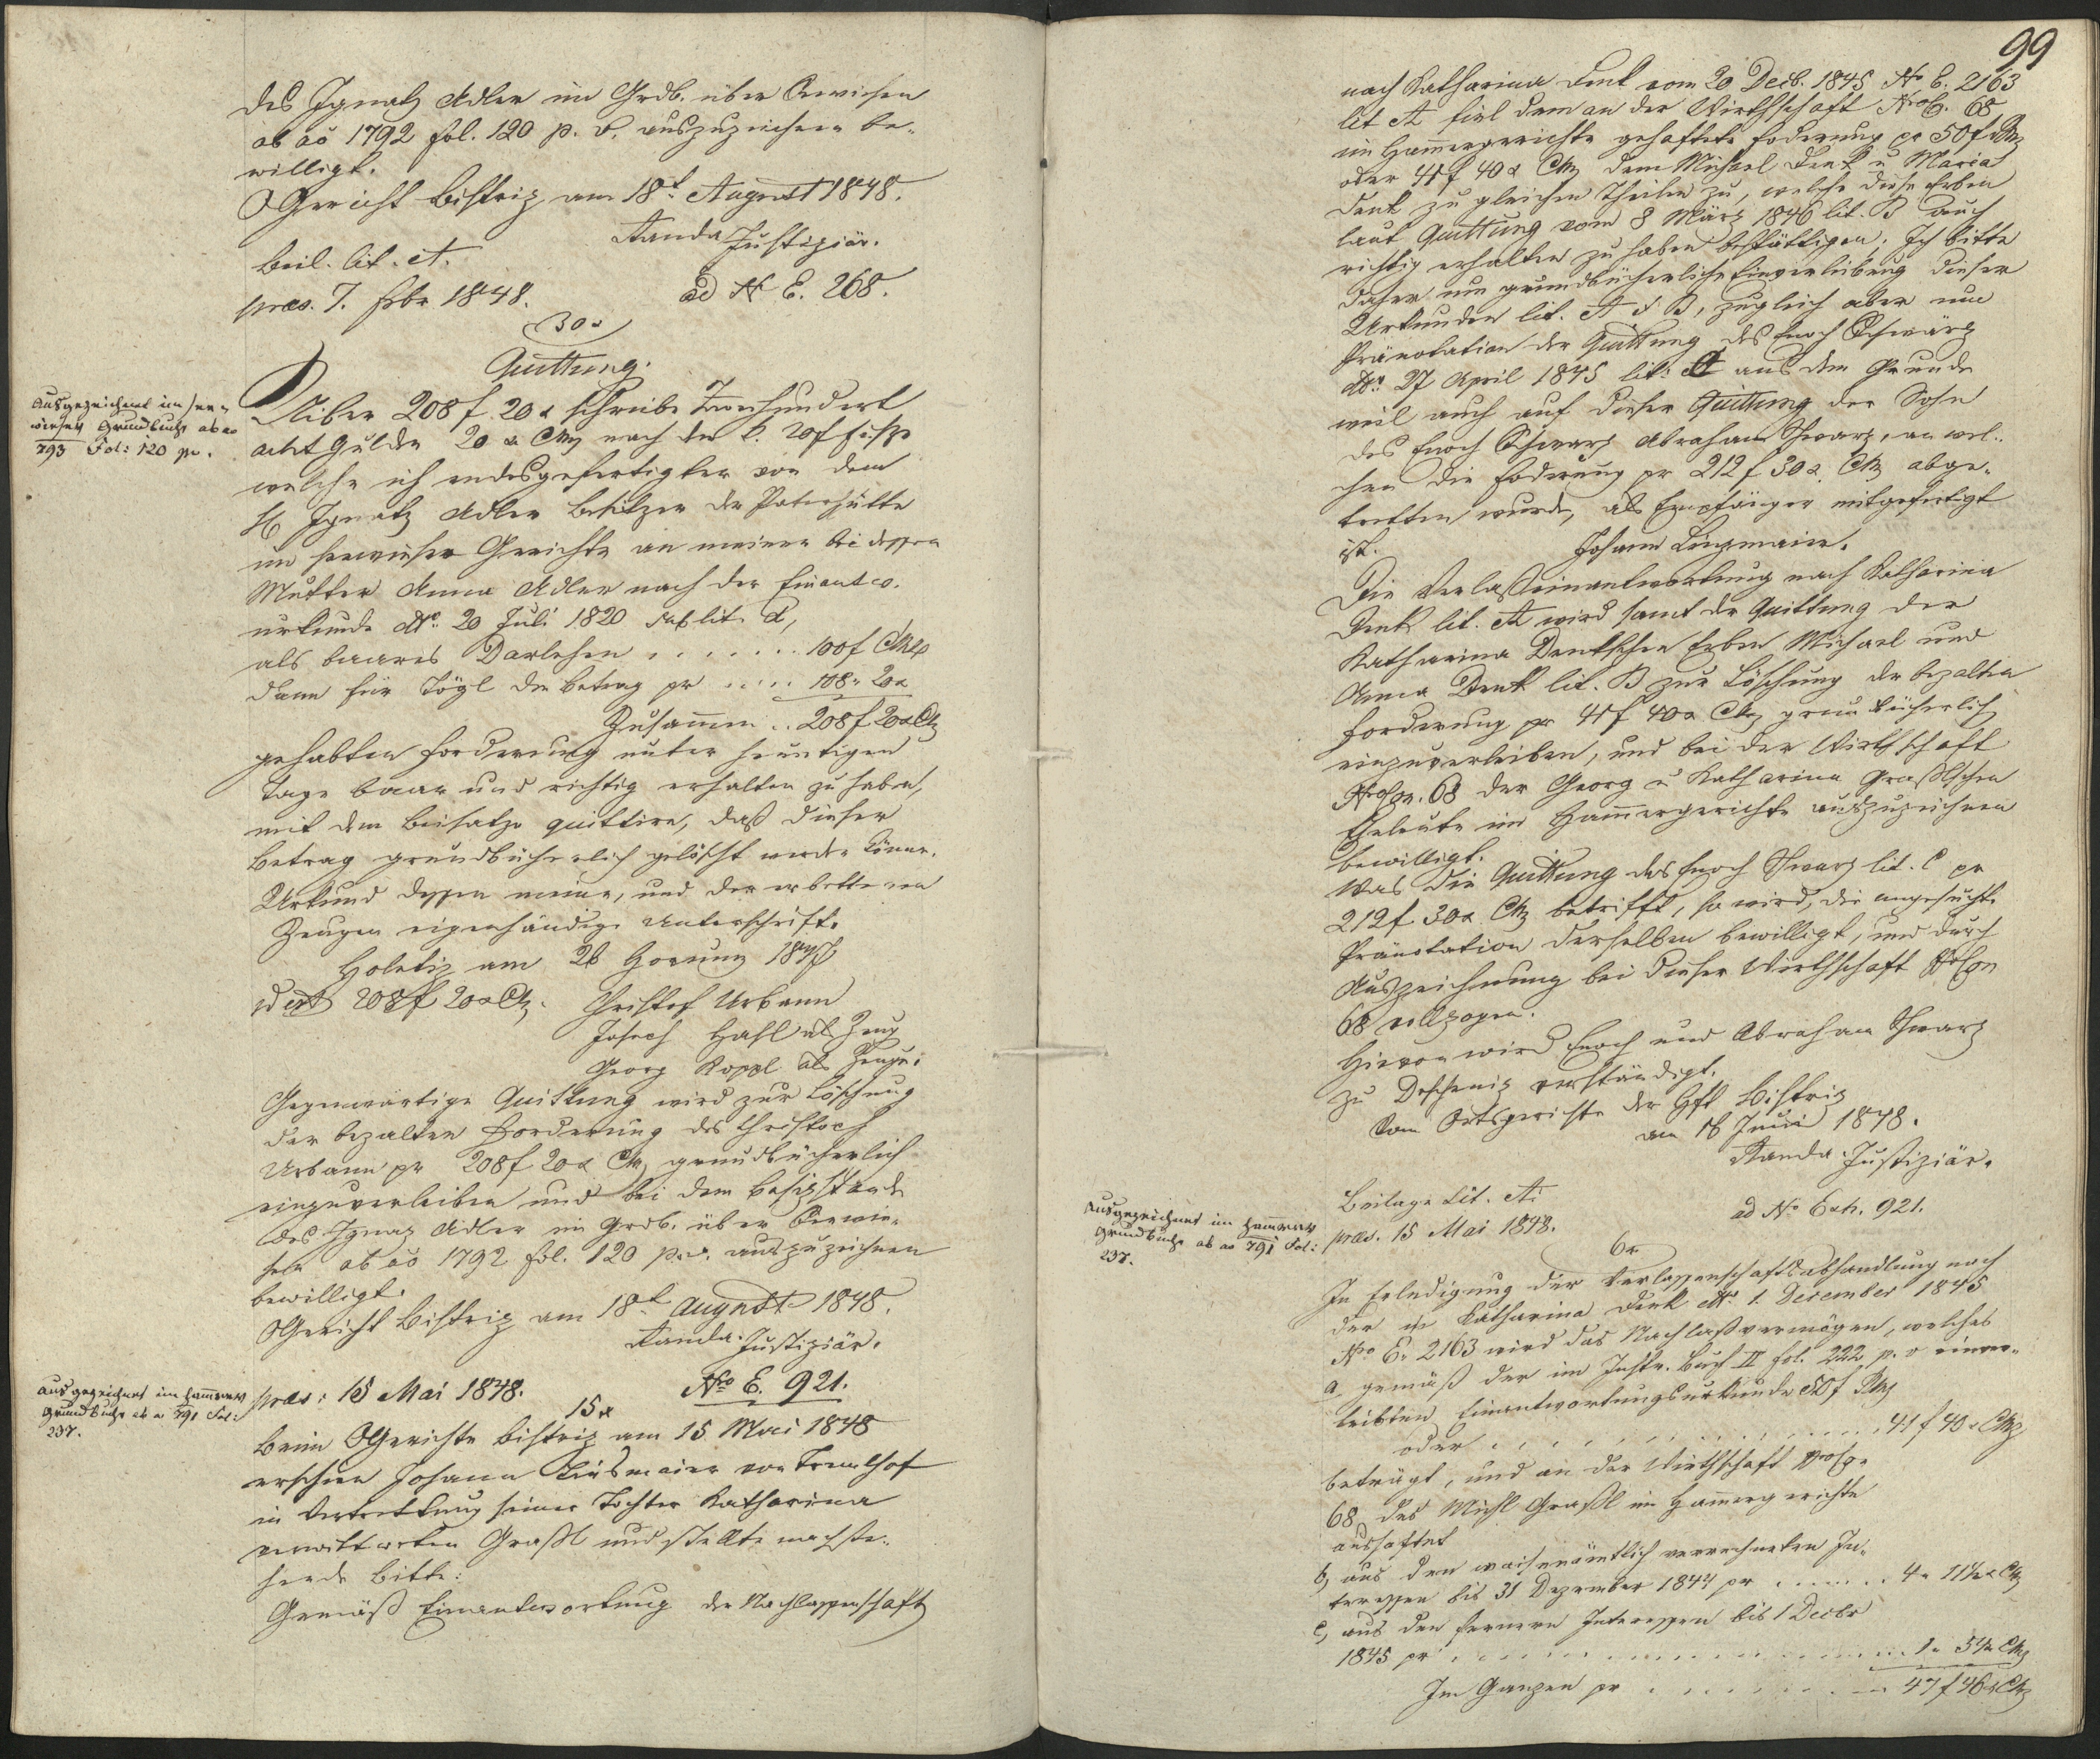 des Ignatz Adler im Grdb. über Serwiesen
ab ao 1792 fol. 120 p. v. auszuzeichnen be-
willigt.
OGericht Bistriz am 18t August 1848.
Kanda Justiziär.
Beil. lit. A.
præs. 7. 1848.
ad N E. 268.
30x
Quittung.
Ausgezeichnet im Ser-
wieser Grundbuche ab ao
793 Fol: 120 pv.
Über 208 f 20 x schreibe Zweihundert
acht Gulden 20 x CMz nach dem C. 20f fuße
welche ich endesgefertigter von dem
H Ignatz Adler Besitzer der Paterhütte
im Serwieser Gerichte an meiner bei dessen
Mutter Anna Adler nach der Einantw.
urkunde dto 20 Juli 1820 sub lit. A,
als baares Darlehen . . . . . . . 100f CMz
dann für Vögl den Betrag pr . . . . . 108 " 20x
Zusammen . . 208 f 20x CMz
gehabten Forderung unter heutigen
Tage baar und richtig erhalten zu haben,
mit dem Beisatze quittire, daß dieser
Betrag grundbücherlich gelöscht werden könne.
Urkund dessen meine, und der erbettenen
Zeugen eigenhändige Unterschrift.
Holetiz am 26 Hornung 1847
id est 208 f 20x CMz. Christof Urbann
Joseph Hasl als Zeug
Georg Koppl als Zeuge.
Gegenwärtige Quittung wird zur Löschung
der bezalten Forderung des Christoph
Urbann pr 208 f 20 x CMz grundbücherlich
einzuverleiben und bei dem Besizstande
des Ignaz Adler im Grdb. über Serwie-
sen ab ao 1792 fol. 120 p. v. auszuzeichnen
bewilligt.
OGericht Bistriz am 18t August 1848.
Kanda Justiziär.
Ausgezeichnet im Hammerer
Grundbuche ab a 791 Fol:
237.
præs: 15 Mai 1848.
No E. 921.
15x
Beim OGerichte Bistriz am 15 Mai 1848
erschien Johann Linsmaier von
in Vertrettung seiner Tochter Katharina
verwittweten Graßl und stellte nachste-
hende Bitte:
Gemäß Einantwortung der Nachlassenschaft
99
nach Katharina Denk vom 20 Decb. 1845 No E. 2163
lit A fiel dem an der Wirthschaft NroC. 68
im Hamergerichte gehaftete Foderung pr 50 f
oder 41 f 40 x CMz dem Michael Denk u Maria
Denk zu gleichen Theilen zu, welche diese Erben
laut Quittung vom 8 März 1846 lit. B auch
richtig erhalten zu haben bestättigen; Ich bitte
daher um grundbücherliche Einverleibung dieser
Urkunden lit. A & B, zugleich aber um
Pränotation der Quittung des Enoch Schwarz
dto 27 April 1845 lit: C aus dem Grunde
weil auch auf dieser Quittung der Sohn
des Enoch Schwarz Abraham Schwarz, an wel-
chen die Foderung pr 212 f 30 x CMz abge-
tretten wurde, als Empfänger mitgefertigt
ist.
Johann Linzmaier.
Die Verlaßeinantwortung nach Katharina
Denk lit. A wird samt der Quittung der
Katharina Denkschen Erben Michael und
Anna Denk lit. B zur Löschung der bezalten
Forderung pr 41 f 40 x CMz grundbücherlich
einzuverleiben, und bei der Wirthschaft
68 der Georg u Katharina Graßlschen
Eheleute im Hamergerichte auszuzeichnen
bewilligt.
Was die Quittung des Enoch Schwarz lit. C pr
212 f 30x CMz betrifft, so wird, die angesuchte
Pränotation derselben bewilligt, und durch
Auszeichnung bei dieser Wirthschaft
68 vollzogen.
Hievon wird Enoch und Abraham Schwarz
zu Deschenig verständigt.
Vom Ortsgerichte der Hft Bistriz
am 16 Juni 1848.
Kanda Justiziär.
Ausgezeichnet im Hammerer
Grundbuche ab ao 791 Fol:
237.
Beilage Lit. A.
ad No Exh. 921.
præs. 15 Mai 1848.
6x
In Erledigung der Verlassenschaftsabhandlung nach
der Katharina Denk dto 1. December 1845
Nro E. 2163 wird das Nachlaßvermögen, welches
a, gemäß der im Instr. Buch II fol. 222 p. v einver-
leibten Einantwortungsurkunde 50 f
oder . . . . . . . . . . . . 41 f 40 x CMz
beträgt, und an der Wirthschaft
68 des Michl Graßl im Hamergerichte
aushaftet
b, aus den waisenämtlich verrechneten In-
teressen bis 31 Dezember 1844 pr . . . . . . 4 "
c, aus den fernern Interessen bis 1 Decbr
1845 pr . . . . . . . . . . . . 1 "
Im Ganzen pr . . . . . . . 47 f 46 x CMz